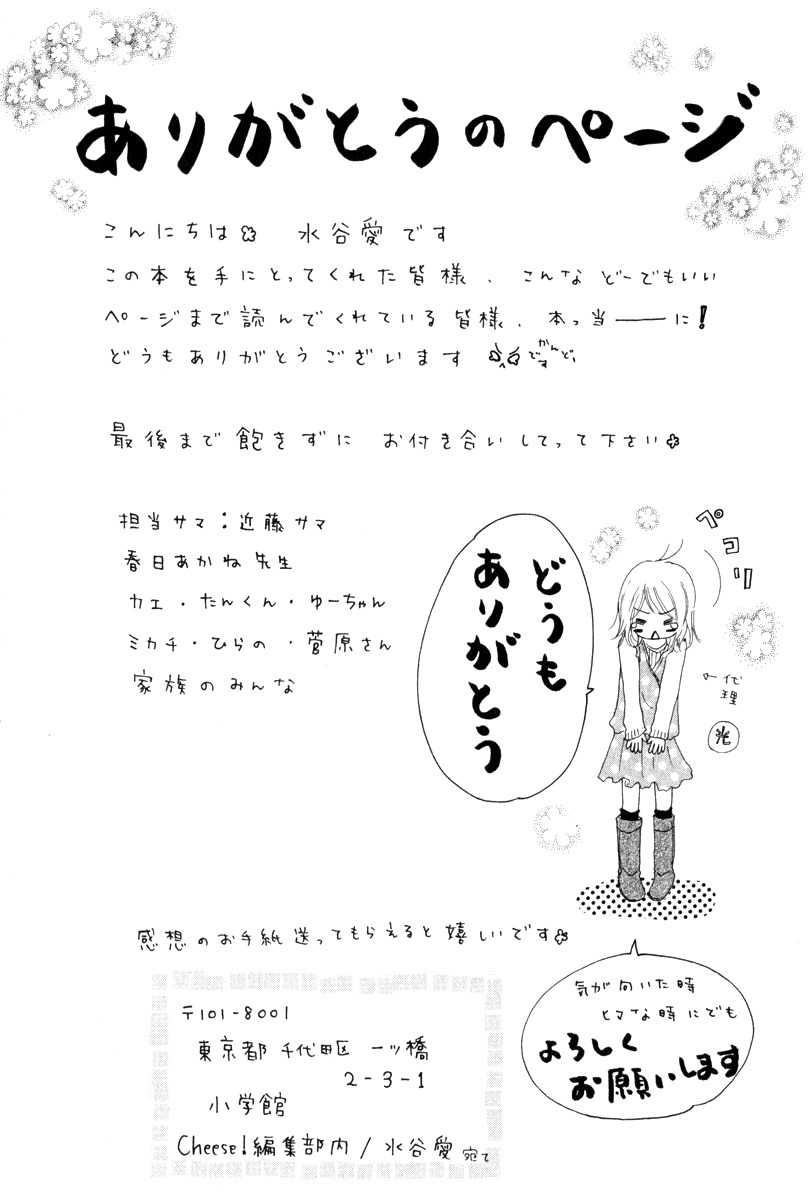 ありがとうのページ
こんにちは 水谷愛です
この本を手にとってくれた皆様、こんなどーでもいい
ページまで読んでくれている皆様、本っ当――に!
どうもありがとうございます
かんどー
です
最後まで飽きずに お付き合いしてって下さい
担当サマ:近藤サマ
春日あかね先生
カエ・たんくん・ゆーちゃん
ミカチ・ひらの・菅原さん
家族のみんな
どうも
ありがとう
ペコリ
←代理
光
感想のお手紙送ってもらえると嬉しいです
〒101-8001
東京都千代田区 一ツ橋
2-3-1
小学館
Cheese!編集部内/水谷愛宛て
気が向いた時
ヒマな時にでも
よろしく
お願いします